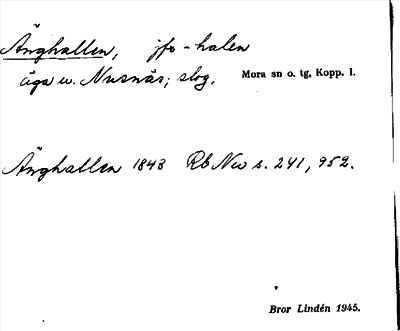 Änghallen, jfr -halen
äga u. Nusnäs; slog. Mora sn o. tg, Kopp. l.
Änghallen 1843 Rb Nu s. 241, 952.
Bror Lindén 1945.